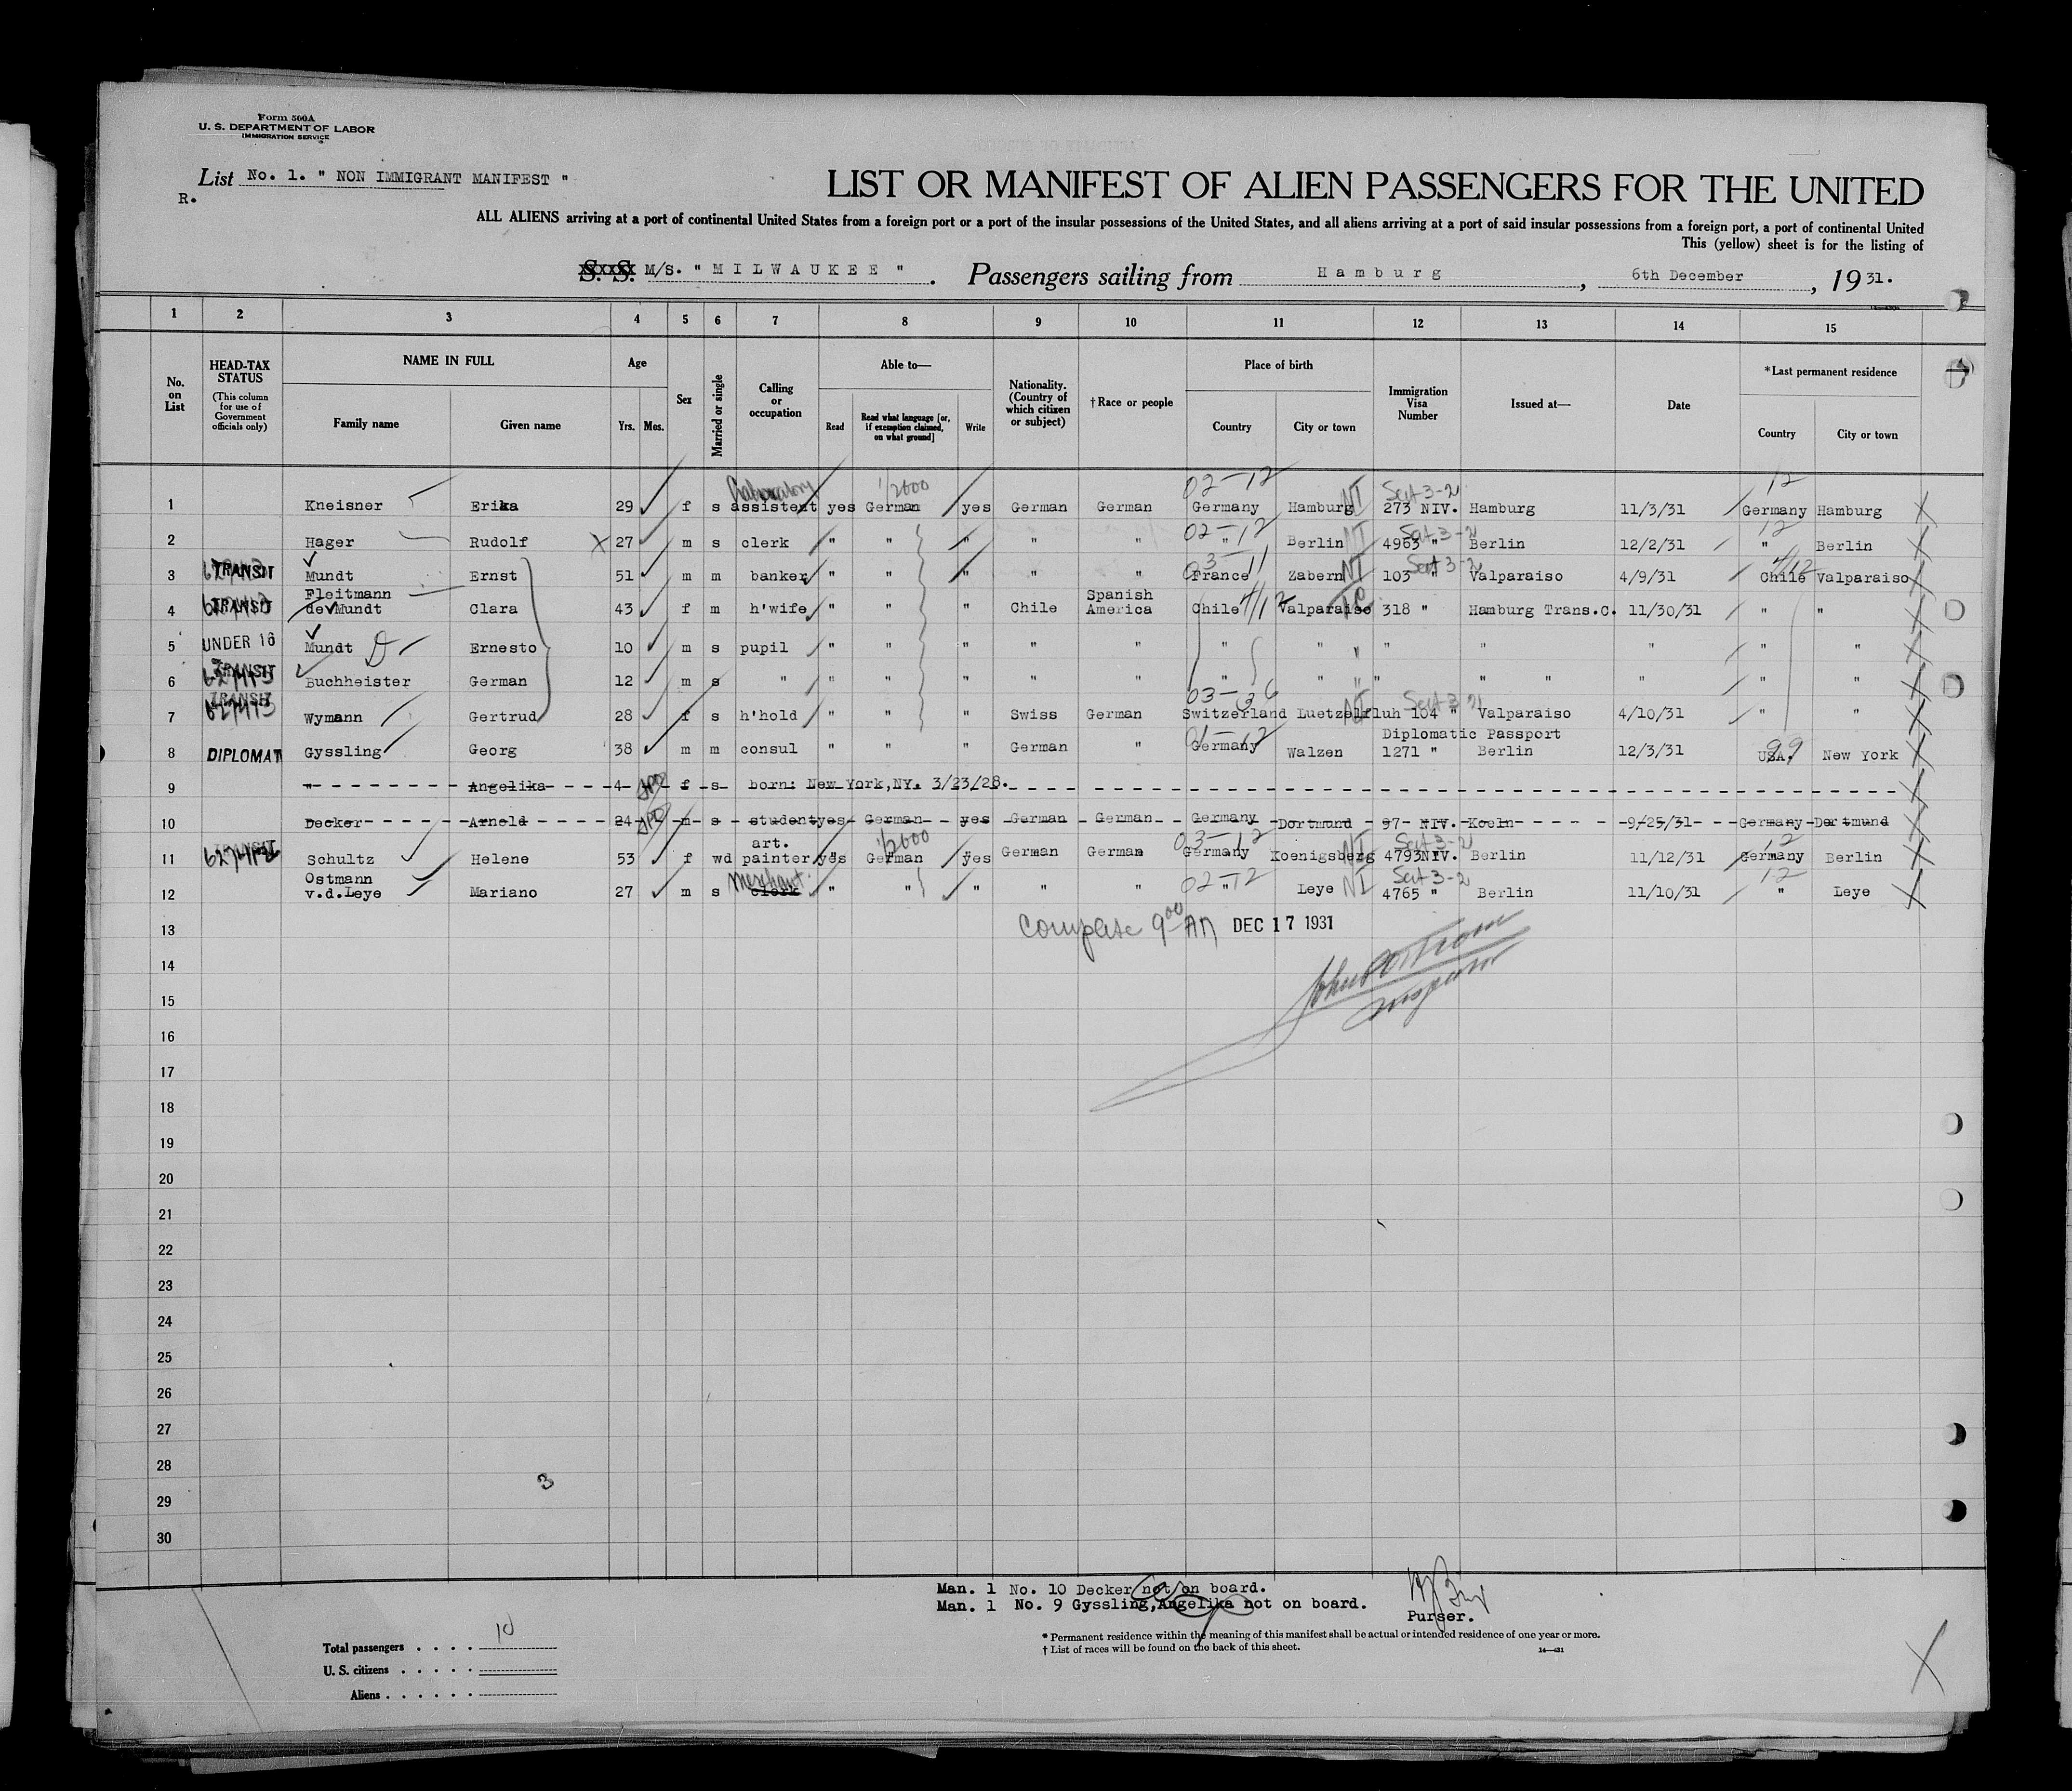 Form 500A
U. S. DEPARTMENT OF LABOR
IMMIGRATION SERVICE
List No. 1. " NON IMMIGRANT MANIFEST "
R.
LIST OR MANIFEST OF ALIEN PASSENGERS FOR THE UNITED
ALL ALIENS arriving at a port of continental United States from a foreign port or a port of the insular possessions of the United States, and all aliens arriving at a port of said insular possessions from a foreign port, a port of continental United
This (yellow) sheet is for the listing of
S. S. M/S. " M I L W A U K E E ". Passengers sailing from H a m b u r g, 6th December, 19 31.
1 2 3 4 5 6 7 8 9 10 11 12 13 14 15
No. on List
HEAD-TAX STATUS (This column for use of Government officials only)
NAME IN FULL
Family name Given name
Age
Yrs. Mos.
Sex
Married or single
Calling or occupation
Able to—
Read
Read what language [or, if exemption claimed, on what ground]
Write
Nationality. (Country of which citizen or subject)
†Race or people
Place of birth
Country City or town
Immigration Visa Number
Issued at—
Date
*Last permanent residence
Country City or town
02-12 12
Laboratory 1/2600 Sect 3-2
1 Kneisner Erika 29 f s assistent yes German yes German German Germany Hamburg NI 273 NIV. Hamburg 11/3/31 Germany Hamburg
02-12 Sect 3-2 12
2 Hager Rudolf 27 m s clerk " " " " " " Berlin NI 4963 " Berlin 12/2/31 " Berlin
03-11 Sect 3-2 4/12
3 TRANSIT Mundt Ernst 51 m m banker " " " " " France Zabern NI 103 " Valparaiso 4/9/31 Chile Valparaiso
Fleitmann Spanish
4 TRANSIT de Mundt Clara 43 f m h'wife " " " Chile America Chile 4/12 Valparaiso 318 " Hamburg Trans.C. 11/30/31 " "
5 UNDER 16 Mundt Ernesto 10 m s pupil " " " " " " " " " " " "
6 TRANSIT Buchheister German 12 m s " " " " " " " " " " " " " "
03-36 Sect 3-2
7 TRANSIT Wymann Gertrud 28 f s h'hold " " " Swiss German Switzerland Luetzelfluh 104 " Valparaiso 4/10/31 " "
Diplomatic Passport
8 DIPLOMAT Gyssling Georg 38 m m consul " " " German " Germany Walzen 1271 " Berlin 12/3/31 USA. 99 New York
9 " Angelika 4 f s born: New York,NY. 3/23/28.
10 Decker Arnold 24 m s student yes German yes German German Germany Dortmund 97 NIV. Koeln 9/25/31 Germany Dortmund
art. 1/2600 03-12 Sect 3-2 12
11 TRANSIT Schultz Helene 53 f wd painter yes German yes German German Germany Koenigsberg NI 4793NIV. Berlin 11/12/31 Germany Berlin
Ostmann Merchant 02-12 Sect 3-2 12
12 v.d.Leye Mariano 27 m s clerk " " " " " " Leye NI 4765 " Berlin 11/10/31 " Leye
13 Complete 9 00 AM DEC 17 1931
14
15 Inspector
16
17
18
19
20
21
22
23
24
25
26
27
28
3
29
30
Man. 1 No. 10 Decker not on board.
Man. 1 No. 9 Gyssling,Angelika not on board.
Purser.
Total passengers . . . . 10
U. S. citizens . . . . .
Aliens . . . . . .
* Permanent residence within the meaning of this manifest shall be actual or intended residence of one year or more.
† List of races will be found on the back of this sheet.